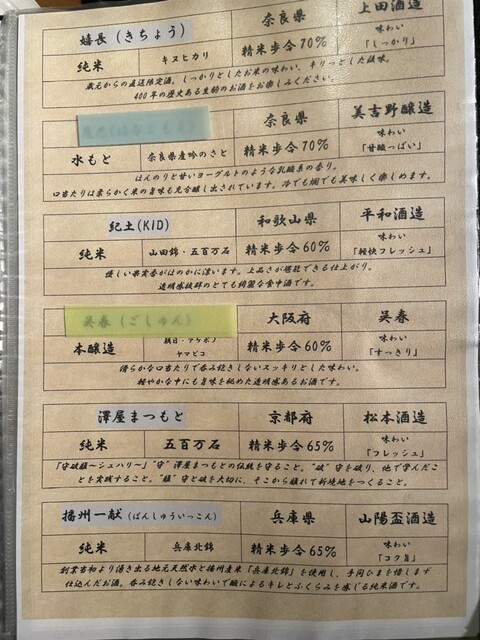 嬉長（きちょう）
奈良県
上田酒造
純米
キヌヒカリ
精米歩合70%
味わい
「しっかり」
蔵元からの直送限定酒。しっかりとしたお米の味わい、キリっとした酸味。
400年の歴史ある生駒のお酒をお楽しみください。
奈良県
美吉野醸造
水もと
奈良県産吟のさと
精米歩合70%
味わい
「甘酸っぱい」
ほんのりと甘いヨーグルトのような乳酸系の香り。
口当たりは柔らかく米の旨味も充分醸し出されています。冷でも燗でも美味しく楽しめます。
紀土(KID)
和歌山県
平和酒造
純米
山田錦・五百万石
精米歩合60%
味わい
「軽快フレッシュ」
優しい果実香がほのかに漂います。上品さが堪能できる仕上がり。
透明感抜群のとても綺麗な食中酒です。
呉春（ごしゅん）
大阪府
呉春
本醸造
朝日・アケボノ
ヤマビコ
精米歩合60%
味わい
「すっきり」
滑らかな口当たりで呑み飽きしないスッキリとした味わい。
軽やかな中にも旨味を秘めた透明感あるお酒です。
澤屋まつもと
京都府
松本酒造
純米
五百万石
精米歩合65%
味わい
「フレッシュ」
「守破離～シュハリ～」"守"澤屋まつもとの伝統を守ること。"破"守を破り、他で学んだこ
とを実践すること。"離"守と破を大切に、そこから離れて新境地をつくること。
播州一献（ばんしゅういっこん）
兵庫県
山陽盃酒造
純米
兵庫北錦
精米歩合65%
味わい
「コク旨」
創業当初より湧き出る地元天然水と播州産米「兵庫北錦」を使用し、手間ひまを惜しまず
仕込んだお酒。呑み飽きしない味わいで酸によるキレとふくらみを感じる純米酒です。